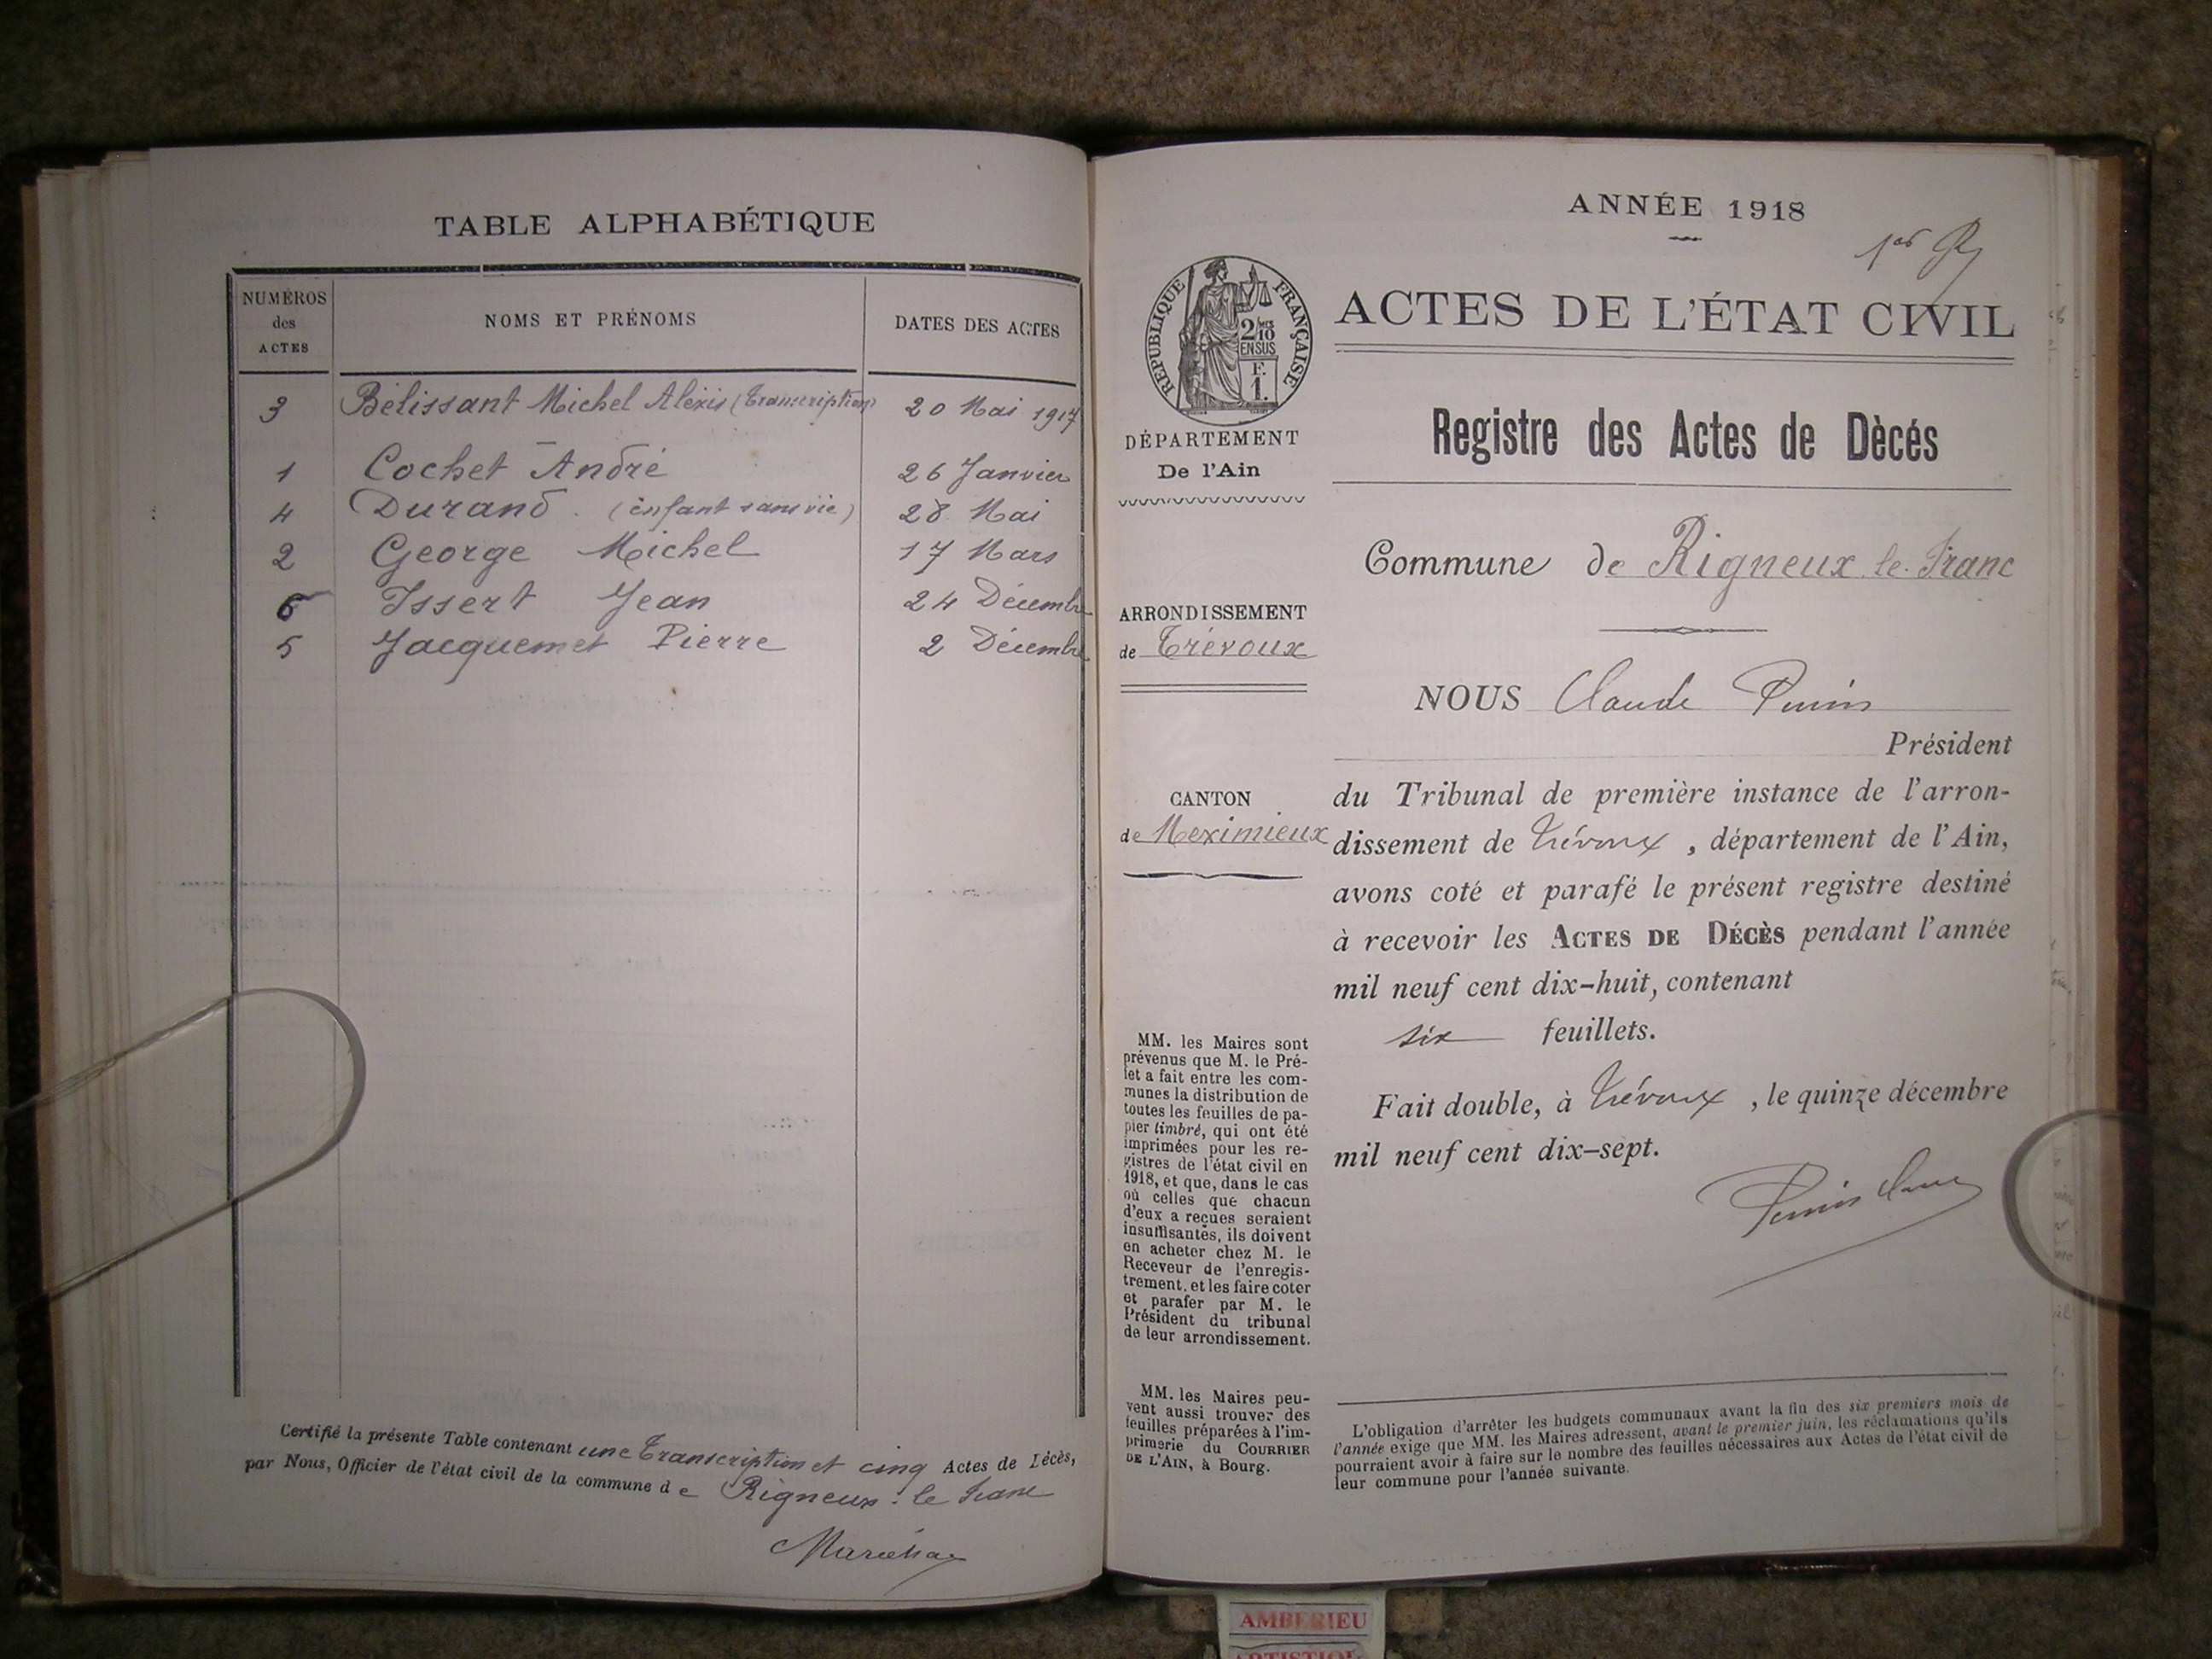 TABLE ALPHABÉTIQUE
NUMÉROS
des
ACTES
NOMS ET PRÉNOMS
DATES DES ACTES
3 Bélissant Michel Alexis (Transcription) 20 Mai 1917
1 Cochet André 26 Janvier
4 Durand (enfant sans vie) 28 Mai
2 George Michel 17 Mars
6 Issert Jean 24 Décembre
5 Jacquemet Pierre 2 Décembre
Certifié la présente Table contenant une Transcription et cinq Actes de Décès,
par Nous, Officier de l'état civil de la commune de Rigneux-le-Franc
ANNÉE 1918
RÉPUBLIQUE FRANÇAISE
2/10
EN SUS
F.
1.
DÉPARTEMENT
De l'Ain
ARRONDISSEMENT
de Trévoux
CANTON
de Meximieux
MM. les Maires sont
prévenus que M. le Pré-
fet a fait entre les com-
munes la distribution de
toutes les feuilles de pa-
pier timbré, qui ont été
imprimées pour les re-
gistres de l'état civil en
1918, et que, dans le cas
où celles que chacun
d'eux a reçues seraient
insuffisantes, ils doivent
en acheter chez M. le
Receveur de l'enregis-
trement, et les faire coter
et parafer par M. le
Président du tribunal
de leur arrondissement.
MM. les Maires peu-
vent aussi trouver des
feuilles préparées à l'im-
primerie du COURRIER
DE L'AIN, à Bourg.
ACTES DE L'ÉTAT CIVIL
Registre des Actes de Dècés
Commune de Rigneux-le-Franc
NOUS Claude
Président
du Tribunal de première instance de l'arron-
dissement de Trévoux, département de l'Ain,
avons coté et parafé le présent registre destiné
à recevoir les ACTES DE DÉCÈS pendant l'année
mil neuf cent dix-huit, contenant
six feuillets.
Fait double, à Trévoux, le quinze décembre
mil neuf cent dix-sept.
L'obligation d'arrêter les budgets communaux avant la fin des six premiers mois de
l'année exige que MM. les Maires adressent, avant le premier juin, les réclamations qu'ils
pourraient avoir à faire sur le nombre des feuilles nécessaires aux Actes de l'état civil de
leur commune pour l'année suivante.
AMBERIEU